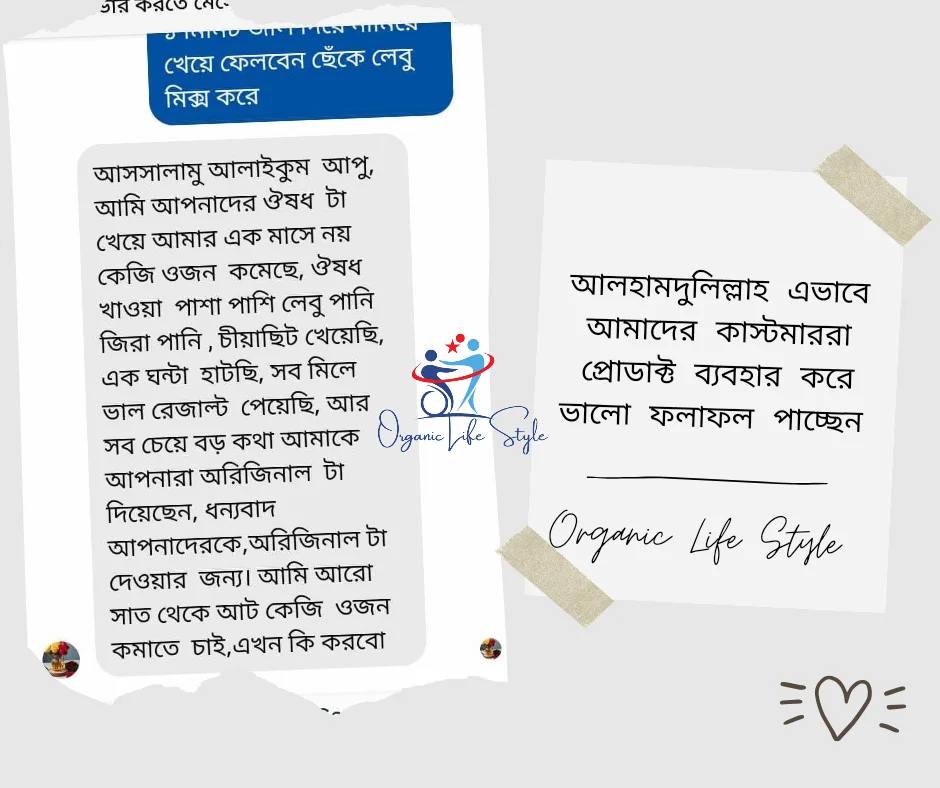 খেয়ে ফেলবেন ছেঁকে লেবু
মিক্স করে
আসসালামু আলাইকুম আপু,
আমি আপনাদের ঔষধ টা
খেয়ে আমার এক মাসে নয়
কেজি ওজন কমেছে, ঔষধ
খাওয়া পাশা পাশি লেবু পানি
জিরা পানি , চীয়াছিট খেয়েছি,
এক ঘন্টা হাটছি, সব মিলে
ভাল রেজাল্ট পেয়েছি, আর
সব চেয়ে বড় কথা আমাকে
আপনারা অরিজিনাল টা
দিয়েছেন, ধন্যবাদ
আপনাদেরকে,অরিজিনাল টা
দেওয়ার জন্য। আমি আরো
সাত থেকে আট কেজি ওজন
কমাতে চাই,এখন কি করবো
Organic Life Style
আলহামদুলিল্লাহ এভাবে
আমাদের কাস্টমাররা
প্রোডাক্ট ব্যবহার করে
ভালো ফলাফল পাচ্ছেন
Organic Life Style